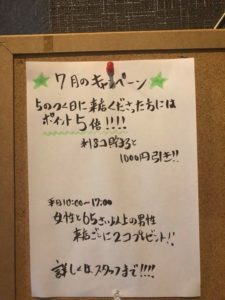 7月のキャンペーン
5のつく日に来店くださった方には
ポイント5倍!!!!
約3コ貯まると
1000円引き!!
平日10:00~17:00
女性と65さい以上の男性
来店ごとに2コプレゼント!!
詳しくは、スタッフまで!!!!